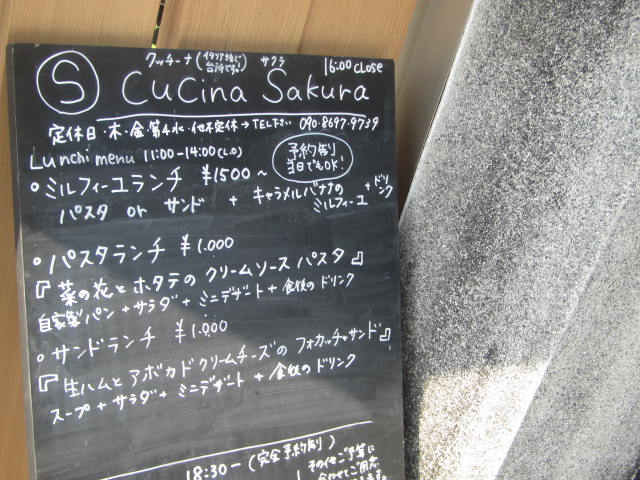 クッチーナ(イタリア語で台所です。) サクラ 16:00 CLOSE
Ⓢ CuCina Sakura
定休日・木・金・第4水・他不定休→TEL下さい 090-8697-9739
Lunchi menu 11:00-14:00(L.O)
予約制
当日でもOK!
・ミルフィーユランチ ¥1500~
パスタ or サンド + キャラメルバナナのミルフィーユ + ドリンク
・パスタランチ ¥1.000
『菜の花とホタテのクリームソースパスタ』
自家製パン+サラダ+ミニデザート+食後のドリンク
・サンドランチ ¥1.000
『生ハムとアボカドクリームチーズのフォカッチャサンド』
スープ+サラダ+ミニデザート+食後のドリンク
18:30-(完全予約制)
その他ご予算に
合わせてご用意